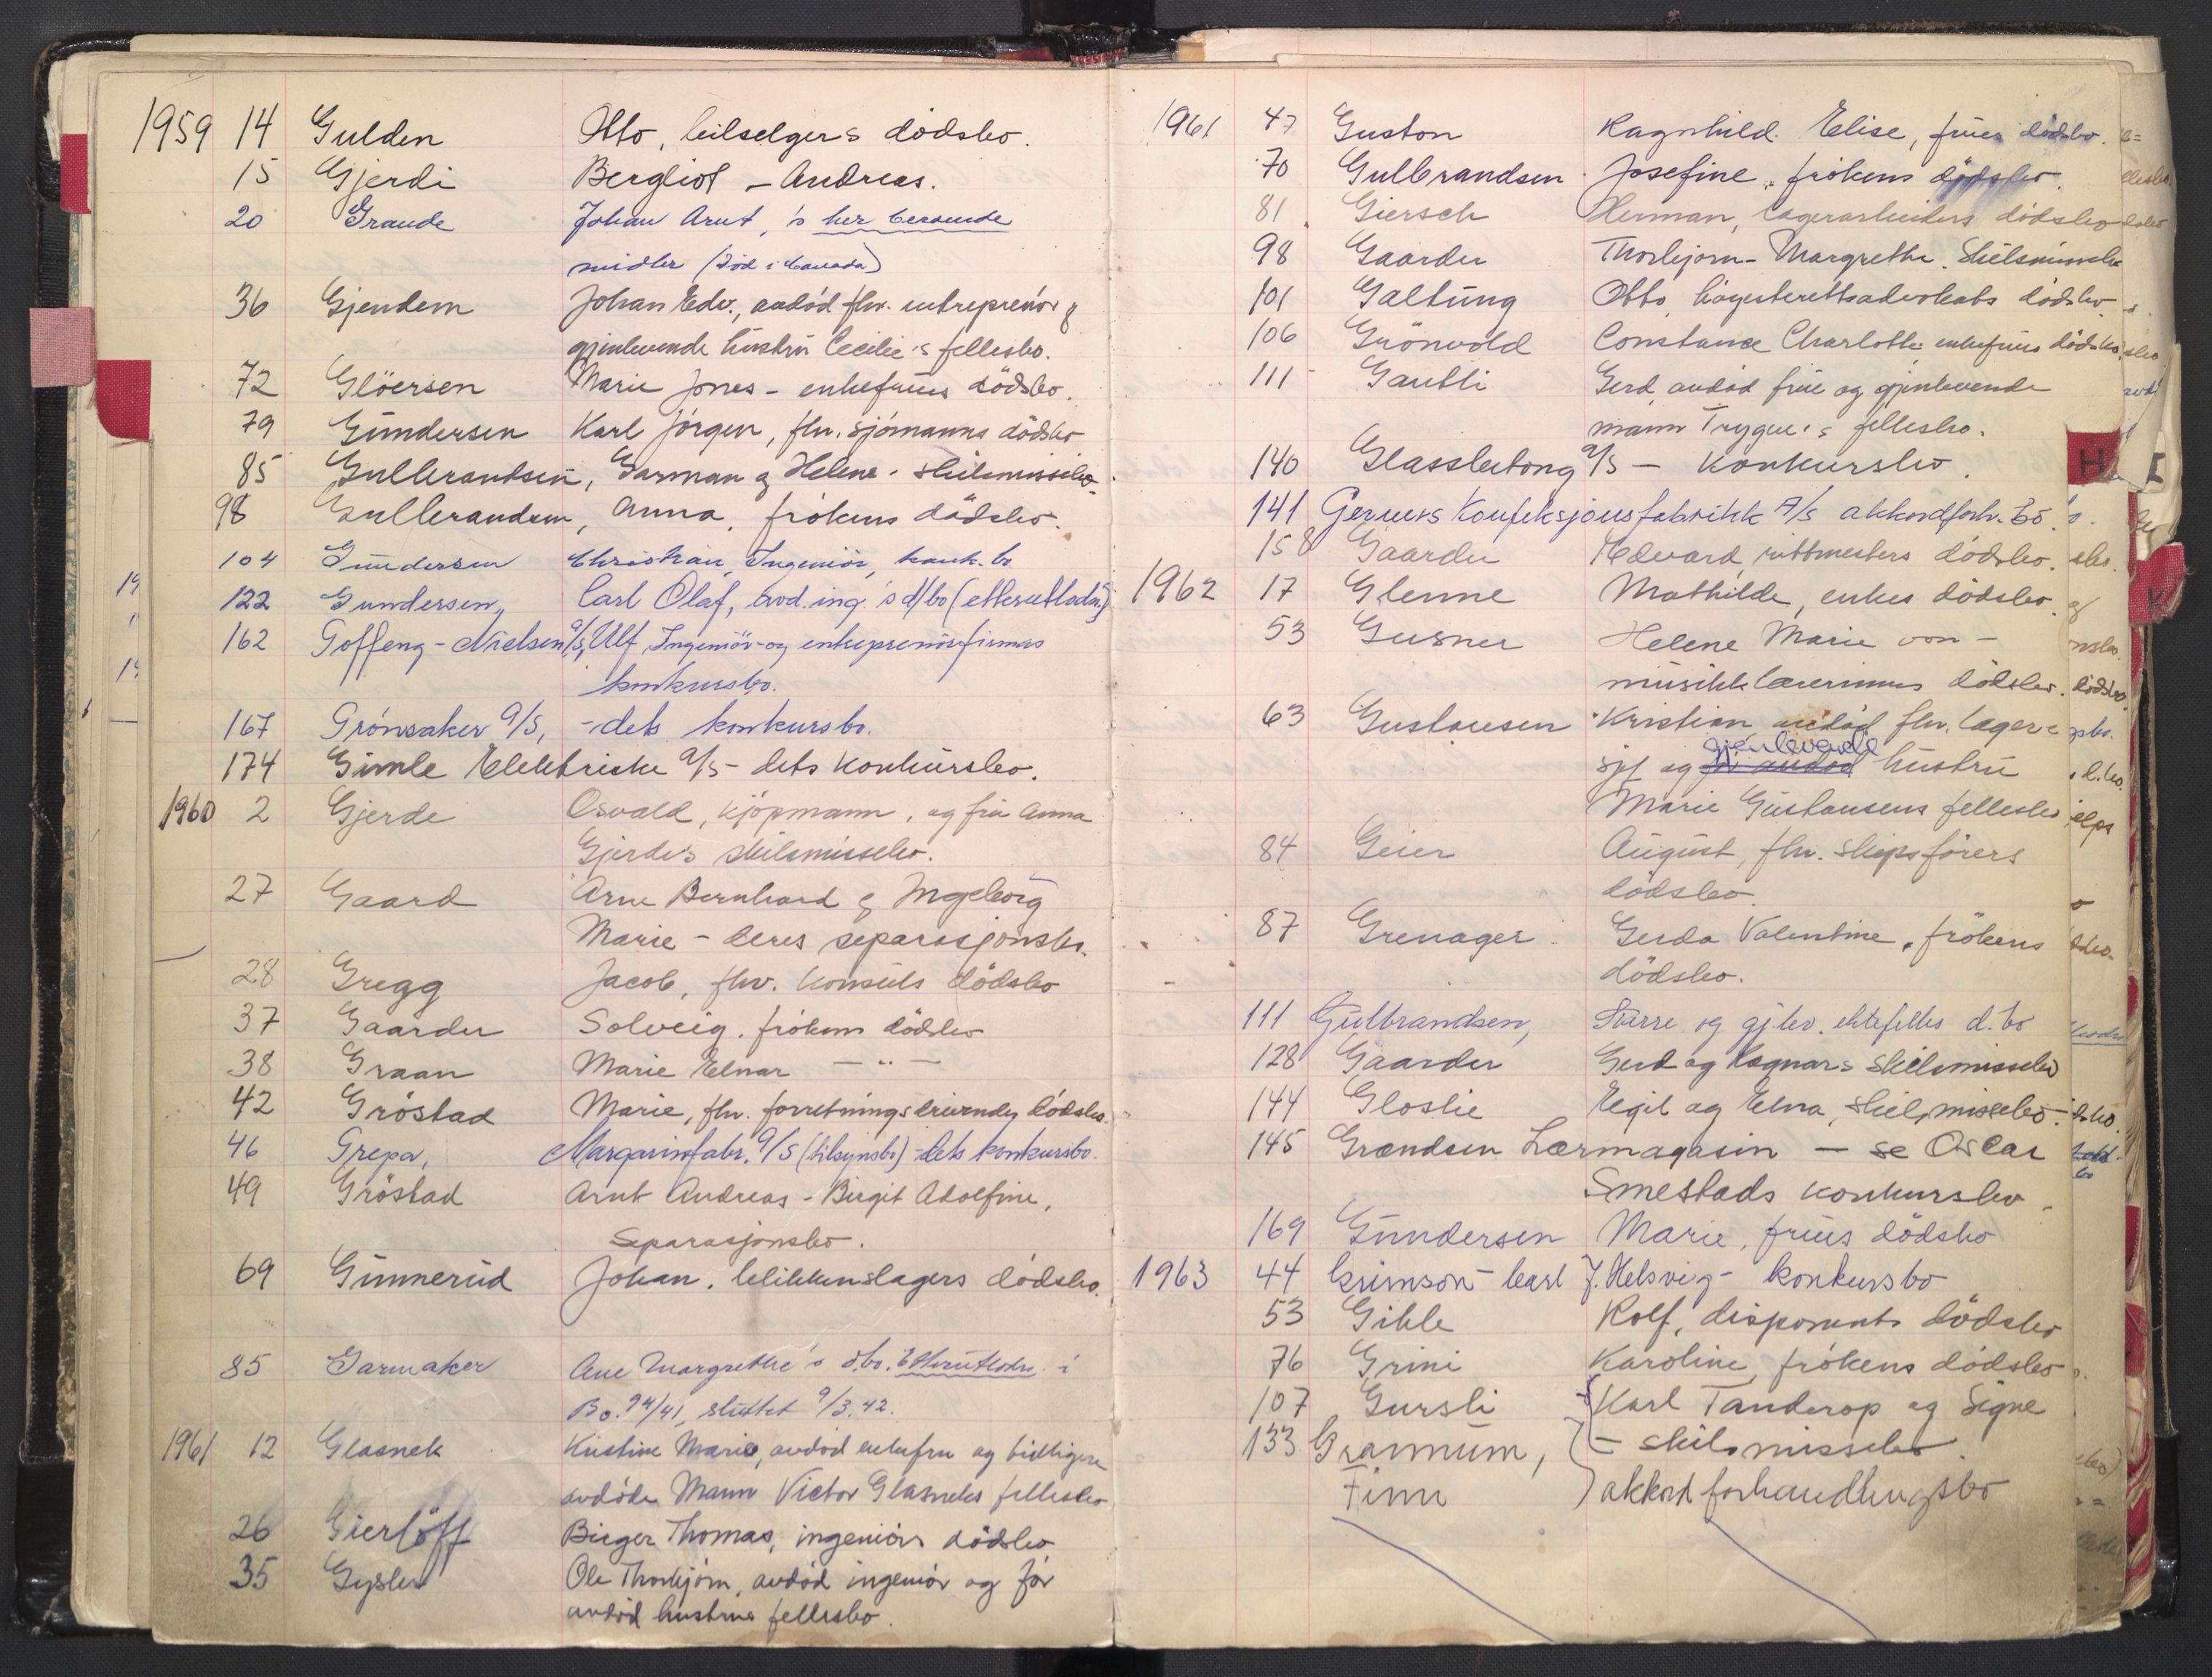 1959 14 Gulden Otto, bilselgers dödsbo.
15 Gjerdi Bergliot - Andreas.
20 Graude Johan Arnt, 's her beroende
midler (död i Canada)
36 Gjendem Johan Edv., avdöd fhv. entreprenör &
gjenlevende hustru Cecilie's fellesbo.
72 Glöersen Marie Jones - enkefrues dödsbo.
79 Gundersen Karl Jörgen, fhv. sjömanns dödsbo
85 Gulbrandsen, Garman & Helene - skilsmissebo.
98 Gulbrandsen, Anna, frökens dödsbo.
104 Gundersen Christian, Ingeniör, konk.bo
122 Gundersen, Carl Olaf, avd. ing.'s d/bo (etterutlodn.)
162 Goffeng-Nielsen a/s, Ulf, Ingeniör- og entreprenörfirmas
konkursbo.
167 Grönsaker a/s, - dets konkursbo.
174 Gimle Elektriske a/s - dets konkursbo.
1960 2 Gjerde Osvald, kjöpmann, og fru Anna
Gjerde's skilsmissebo.
27 Gaard Arne Bernhard & Ingeborg
Marie - deres separasjonsbo.
28 Gregg Jacob, fhv. konsuls dödsbo
37 Gaarder Solveig, frökens dödsbo
38 Graan Marie Elnar — " —
42 Gröstad Marie, fhv. forretningsdrivendes dödsbo.
46 Grepa, Margarinfabr. a/s (tilsynsbo) - dets konkursbo.
49 Gröstad Arnt Andreas - Birgit Adolfine,
Separasjonsbo.
69 Gunnerud Johan, blikkenslagers dödsbo.
85 Garmaker Ane Margrethe's d.bo. Etterutlodn. i
Bo. 94/41, sluttet 9/3.42.
1961 12 Glasnek Kristine Marie, avdöd enkefru og tidligere
avdöde Mann Victor Glasneks fellesbo
26 Gierlöff Birger Thomas, ingeniörs dödsbo
35 Gysler Ole Thorbjörn, avdöd ingeniör og för
avdöd hustrus fellesbo.
1961 47 Guston Ragnhild Elise, frues dödsbo.
70 Gulbrandsen Josefine, frökens dödsbo.
81 Giersch Herman, lagerarbeiders dödsbo
98 Gaarder Thorbjorn - Margrethe. Skilsmissebo
101 Galtung Otto, höyesterettsadvokats dödsbo.
106 Grönvold Constance Charlotte enkefrues dödsbo.
111 Gautli Gerd, avdöd frue og gjenlevende
mann Trygve's fellesbo.
140 Glassbetong a/s - Konkursbo.
141 Geruers Konfeksjonsfabrikk A/S akkordforh. bo.
158 Gaarder Edvard, rittmesters dödsbo.
1962 17 Glenne Mathilde, enkes dödsbo.
53 Gusner Helene Marie von -
musikklærerinnes dödsbo.
63 Gustausen Kristian avdöd fhv. lager-
sjef og gjenlevende hustru
Marie Gustausens fellesbo
84 Geier August, fhv. skipsförers
dödsbo.
87 Grenager Gerda Valentine, frökens
dödsbo.
111 Gulbrandsen, Sverre og gjlev. ektefelles d.bo
128 Gaarder Gerd og Ragnars skilsmissebo
144 Gloslie Egil og Elna, skilsmissebo.
145 Grændsen Lærmagasin - se Oscar
Smestads konkursbo.
169 Gundersen Marie, frues dödsbo
1963 44 Grimson - Carl J. Helsvig - konkursbo
53 Gihle Rolf, disponents dödsbo
76 Grini Karoline, frökens dödsbo
107 Gursli Karl Tanderop og Signe
- skilsmissebo.
133 Grannum,
Finn akkordforhandlingsbo
H
I
K